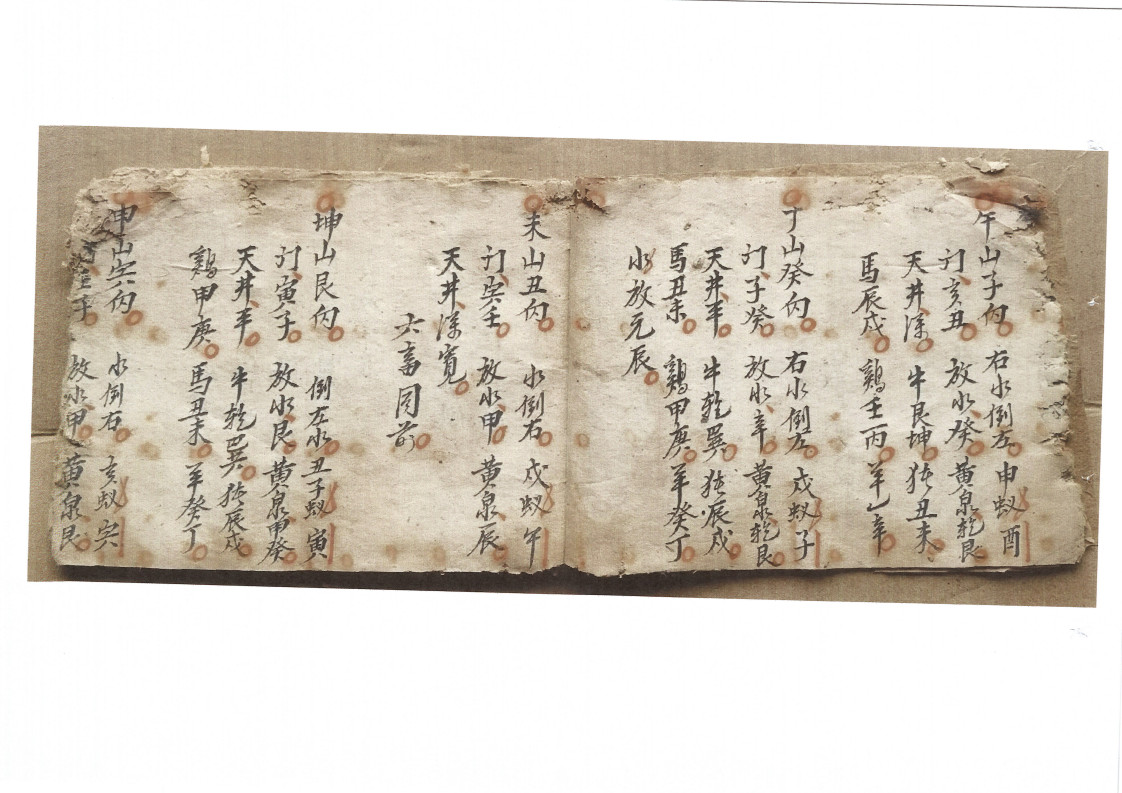 午山子向 右水倒左 申蚁酉
门亥丑 放水癸 黄泉乾艮
天井深 牛艮坤 猪丑未
馬辰戌 鷄壬丙 羊乙辛
丁山癸向 右水倒左 戌蚁子
门子癸 放水辛 黄泉乾艮
天井平 牛乾巽 猪辰戌
馬丑未 鷄甲庚 羊癸丁
水放元辰
未山丑向 水倒右 戌蚁午
门寅壬 放水甲 黄泉辰
天井深寬
六畜同前
坤山艮向 倒左水 丑子蚁寅
门寅子 放水艮 黄泉甲癸
天井平 牛乾巽 猪辰戌
鷄甲庚 馬丑未 羊癸丁
申山寅向 水倒右 亥蚁寅
放水甲 黄泉艮